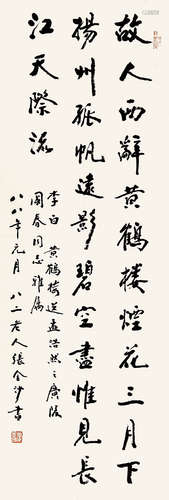 故人西辭黃鶴樓煙花三月下
揚州孤帆遠影碧空盡惟見長
江天際流
李白 黃鶴樓送孟浩然之廣陵
國春同志雅屬
八八年元月 八二老人張金沙書